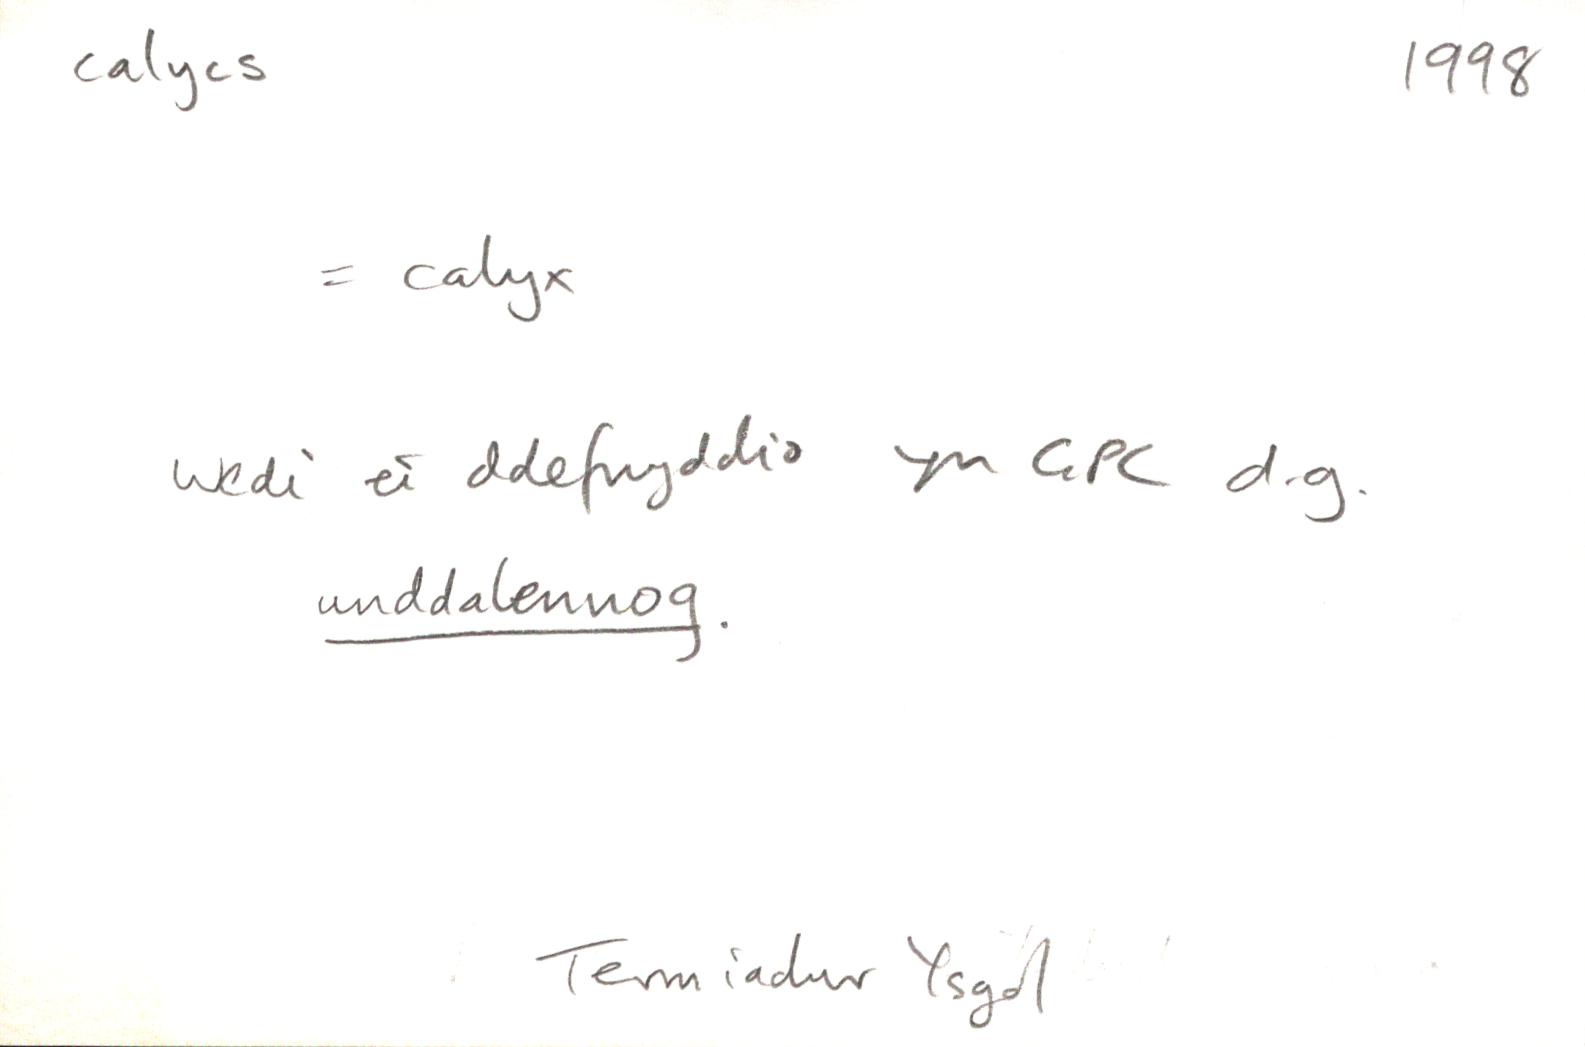 calycs 1998
= calyx
wedi ei ddefnyddio yn GPC d.g.
unddalennog.
Termiadur Ysgol